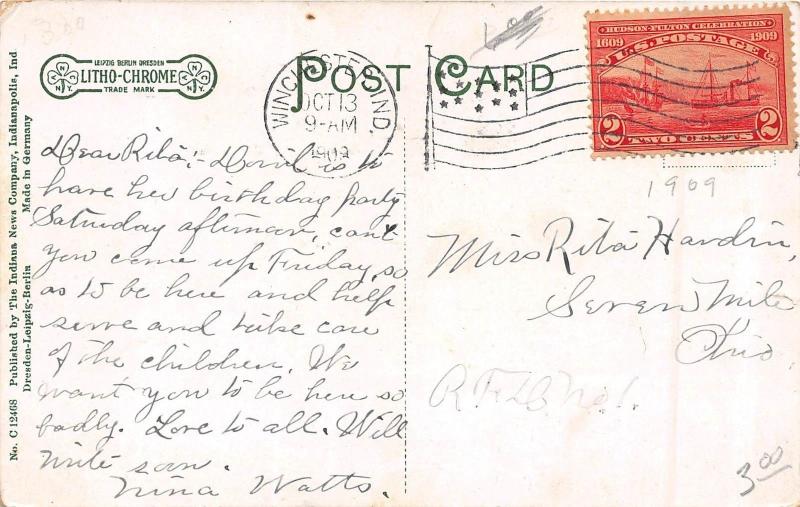 LEIPZIG BERLIN DRESDEN
LITHO-CHROME
TRADE MARK
N Y
N.Y.
POST CARD
WINCHESTER, IND.
OCT 13
9-AM
1909
HUDSON-FULTON CELEBRATION
1609 1909
U.S. POSTAGE
2 TWO CENTS 2
1909
No. C 12468 Published by The Indiana News Company, Indianapolis, Ind
Dresden-Leipzig-Berlin Made in Germany
Dear Rita:- is to
have her birthday party
Saturday afternoon, can't
you come up Friday, so
as to be here and help
serve and take care
of the children. We
want you to be here so
badly. Love to all. Will
write soon.
Nina Watts.
Miss Rita Hardin,
Seven Mile
Ohio.
R.F.D. No 1.
3 00